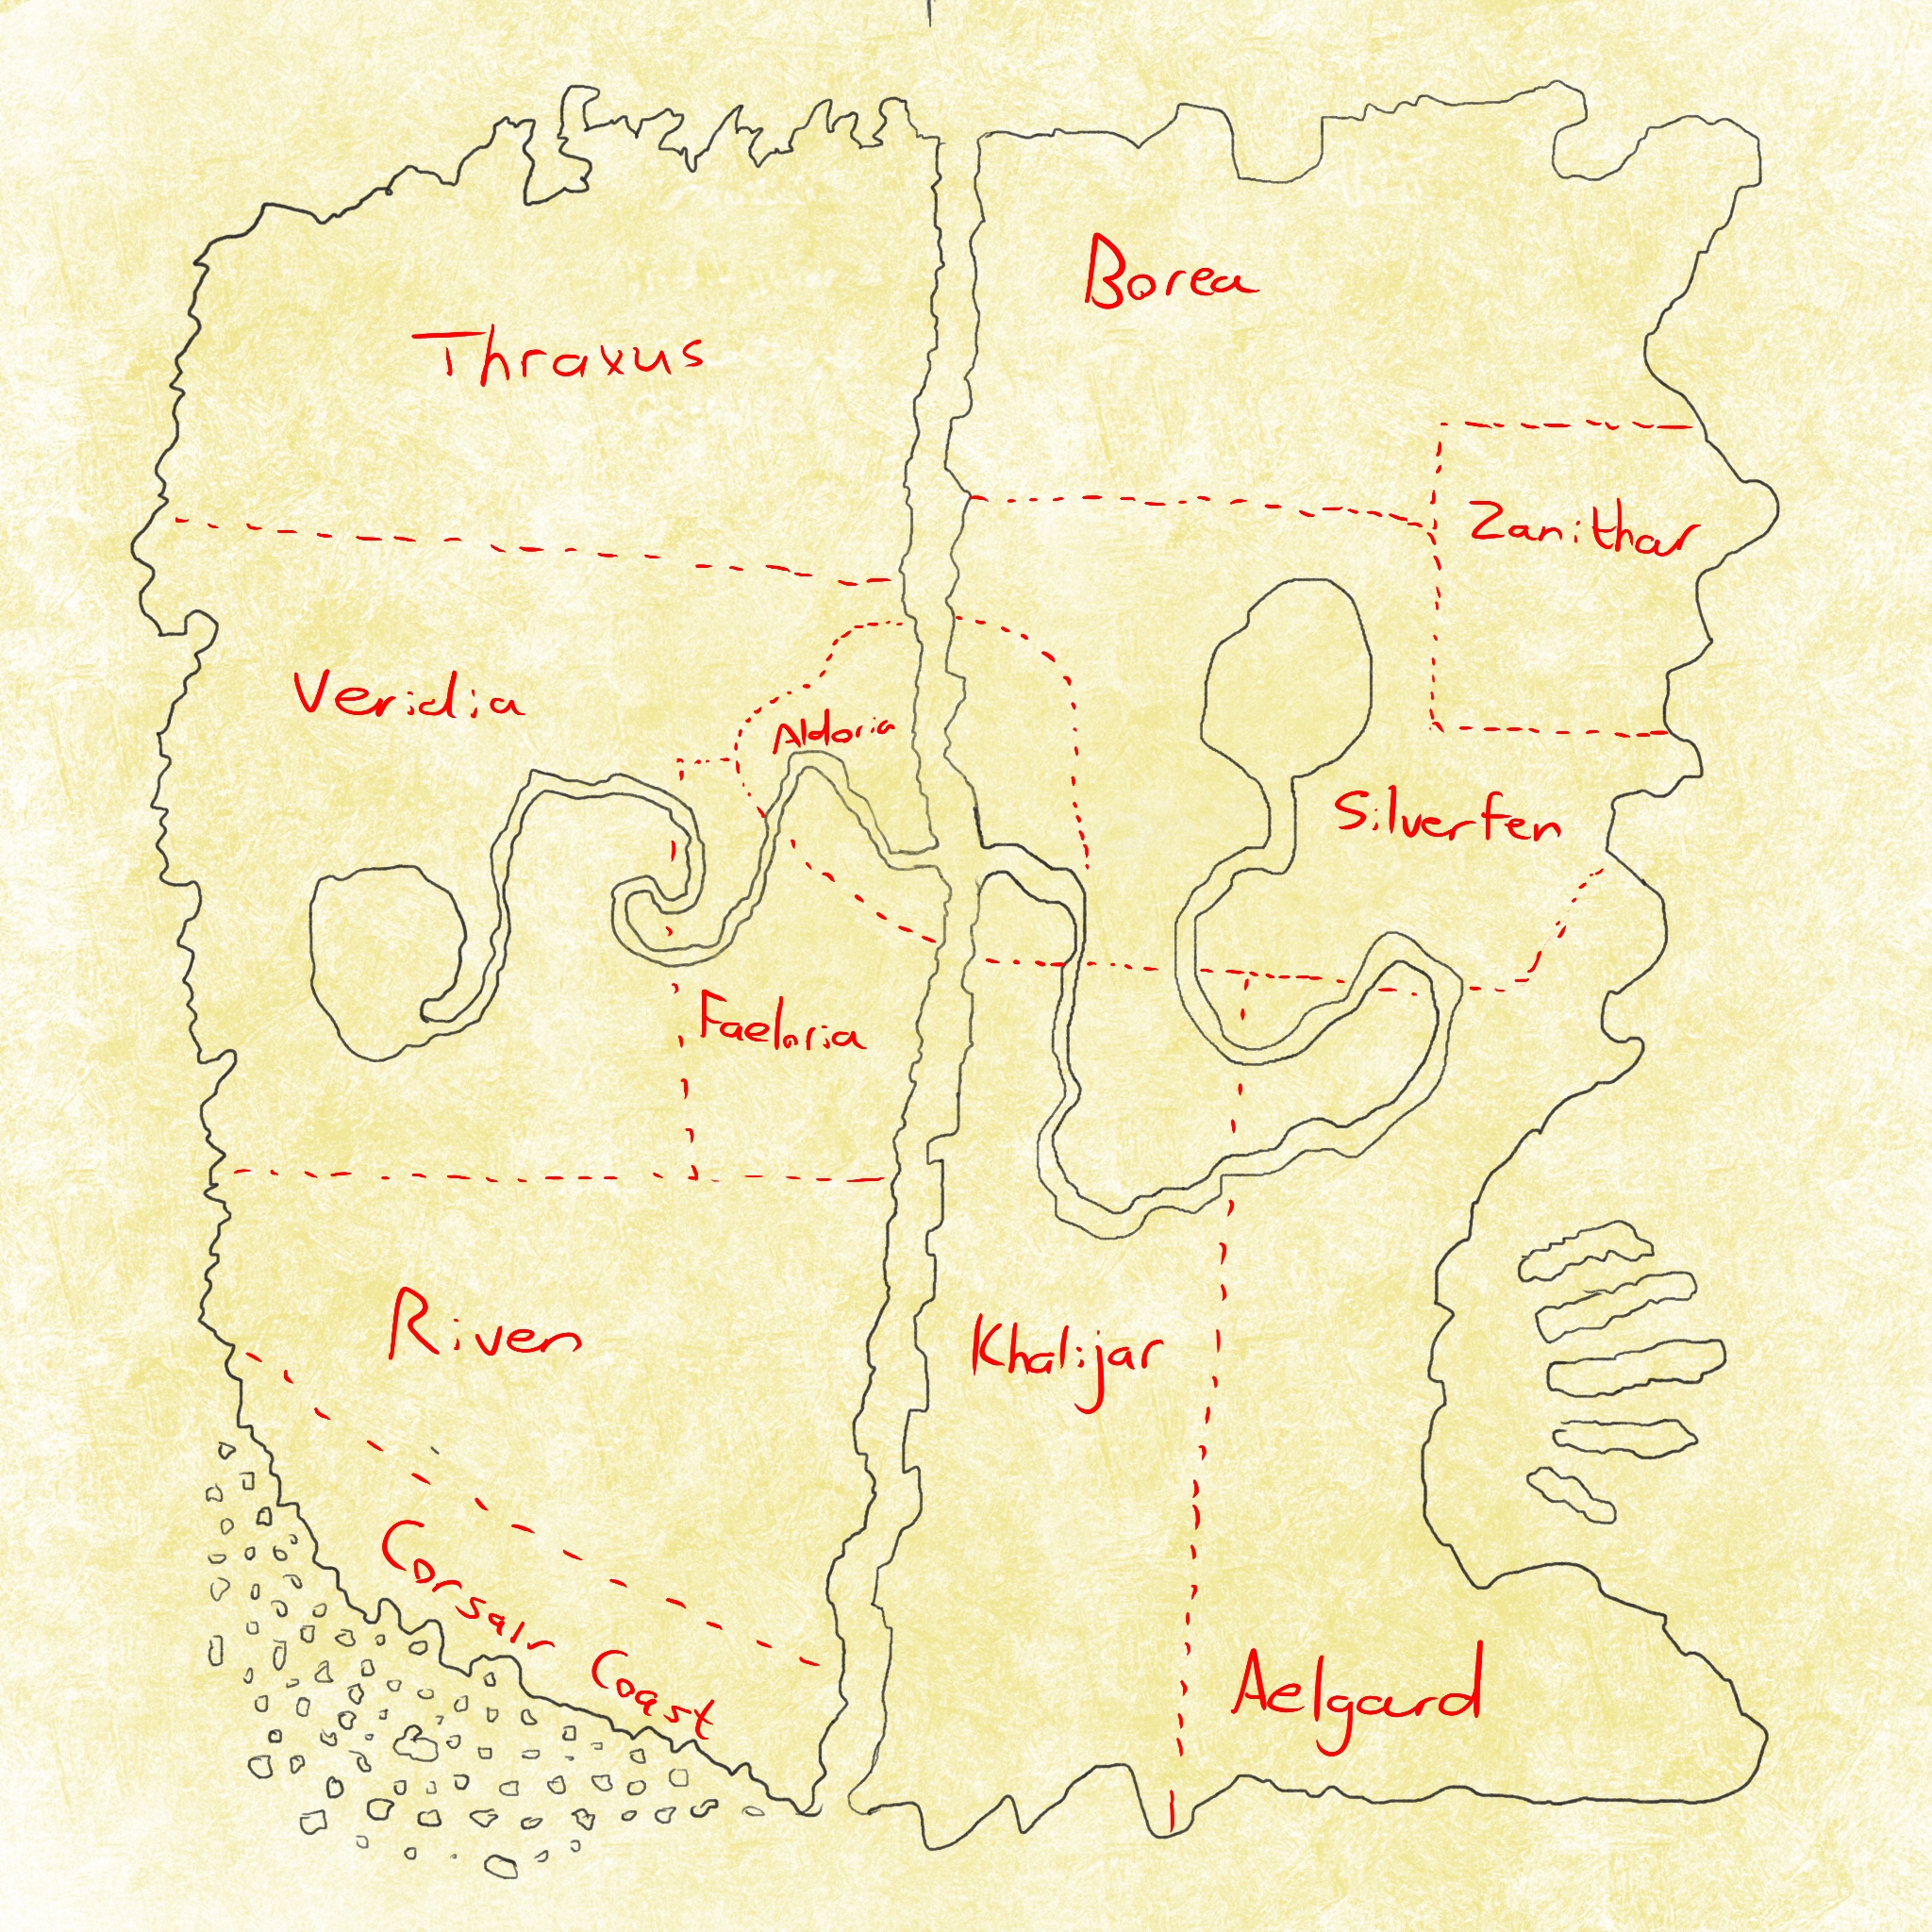 Borea
Thraxus
Zanithar
Veridia
Aldoria
Silverfen
Faeloria
Riven
Khalijar
Corsair Coast
Aelgard